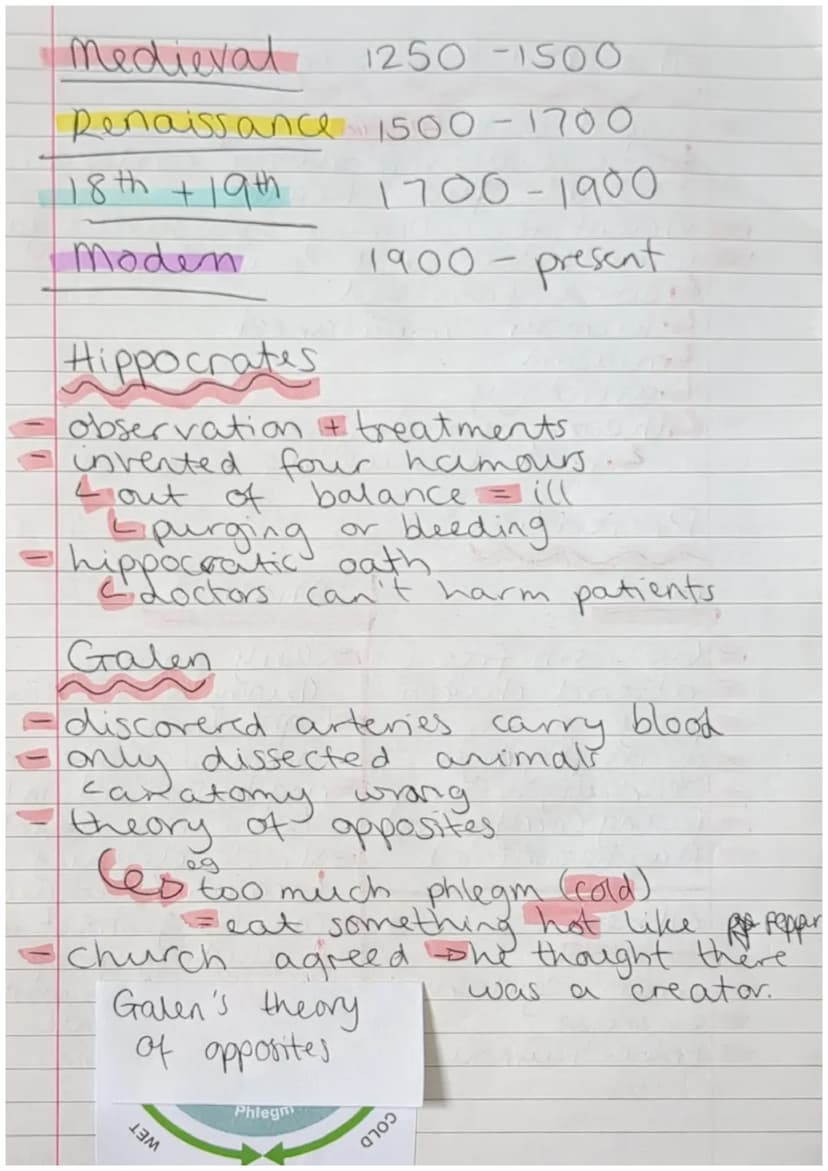 Medieval 1250 - 1500
Renaissance 1500 - 1700
18th + 19th 1700 - 1900
Modern 1900 - present
Hippocrates
- observation + treatments
- invented four humours.
↳ out of balance = ill
↳ purging or bleeding
- hippocratic oath
↳ doctors can't harm patients
Galen
- discovered arteries carry blood
- only dissected animals
↳ anatomy wrong
- theory of opposites
eg
↳ too much phlegm (cold)
= eat something hot like pepper
- church agreed → he thought there
was a creator.
Galen's theory
of opposites
Phlegm
WET
COLD